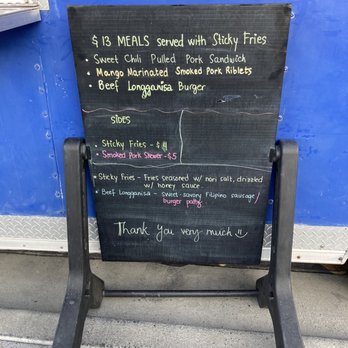 $13 MEALS served with Sticky Fries
• Sweet Chili Pulled Pork Sandwich
• Mango Marinated Smoked Pork Riblets
• Beef Longganisa Burger
SIDES
• Sticky Fries - $
• Smoked Pork Skewer - $5
• Sticky Fries - Fries seasoned w/ nori salt, drizzled
w/ honey sauce.
• Beef Longganisa - sweet-savory Filipino sausage/
burger patty
Thank you very much